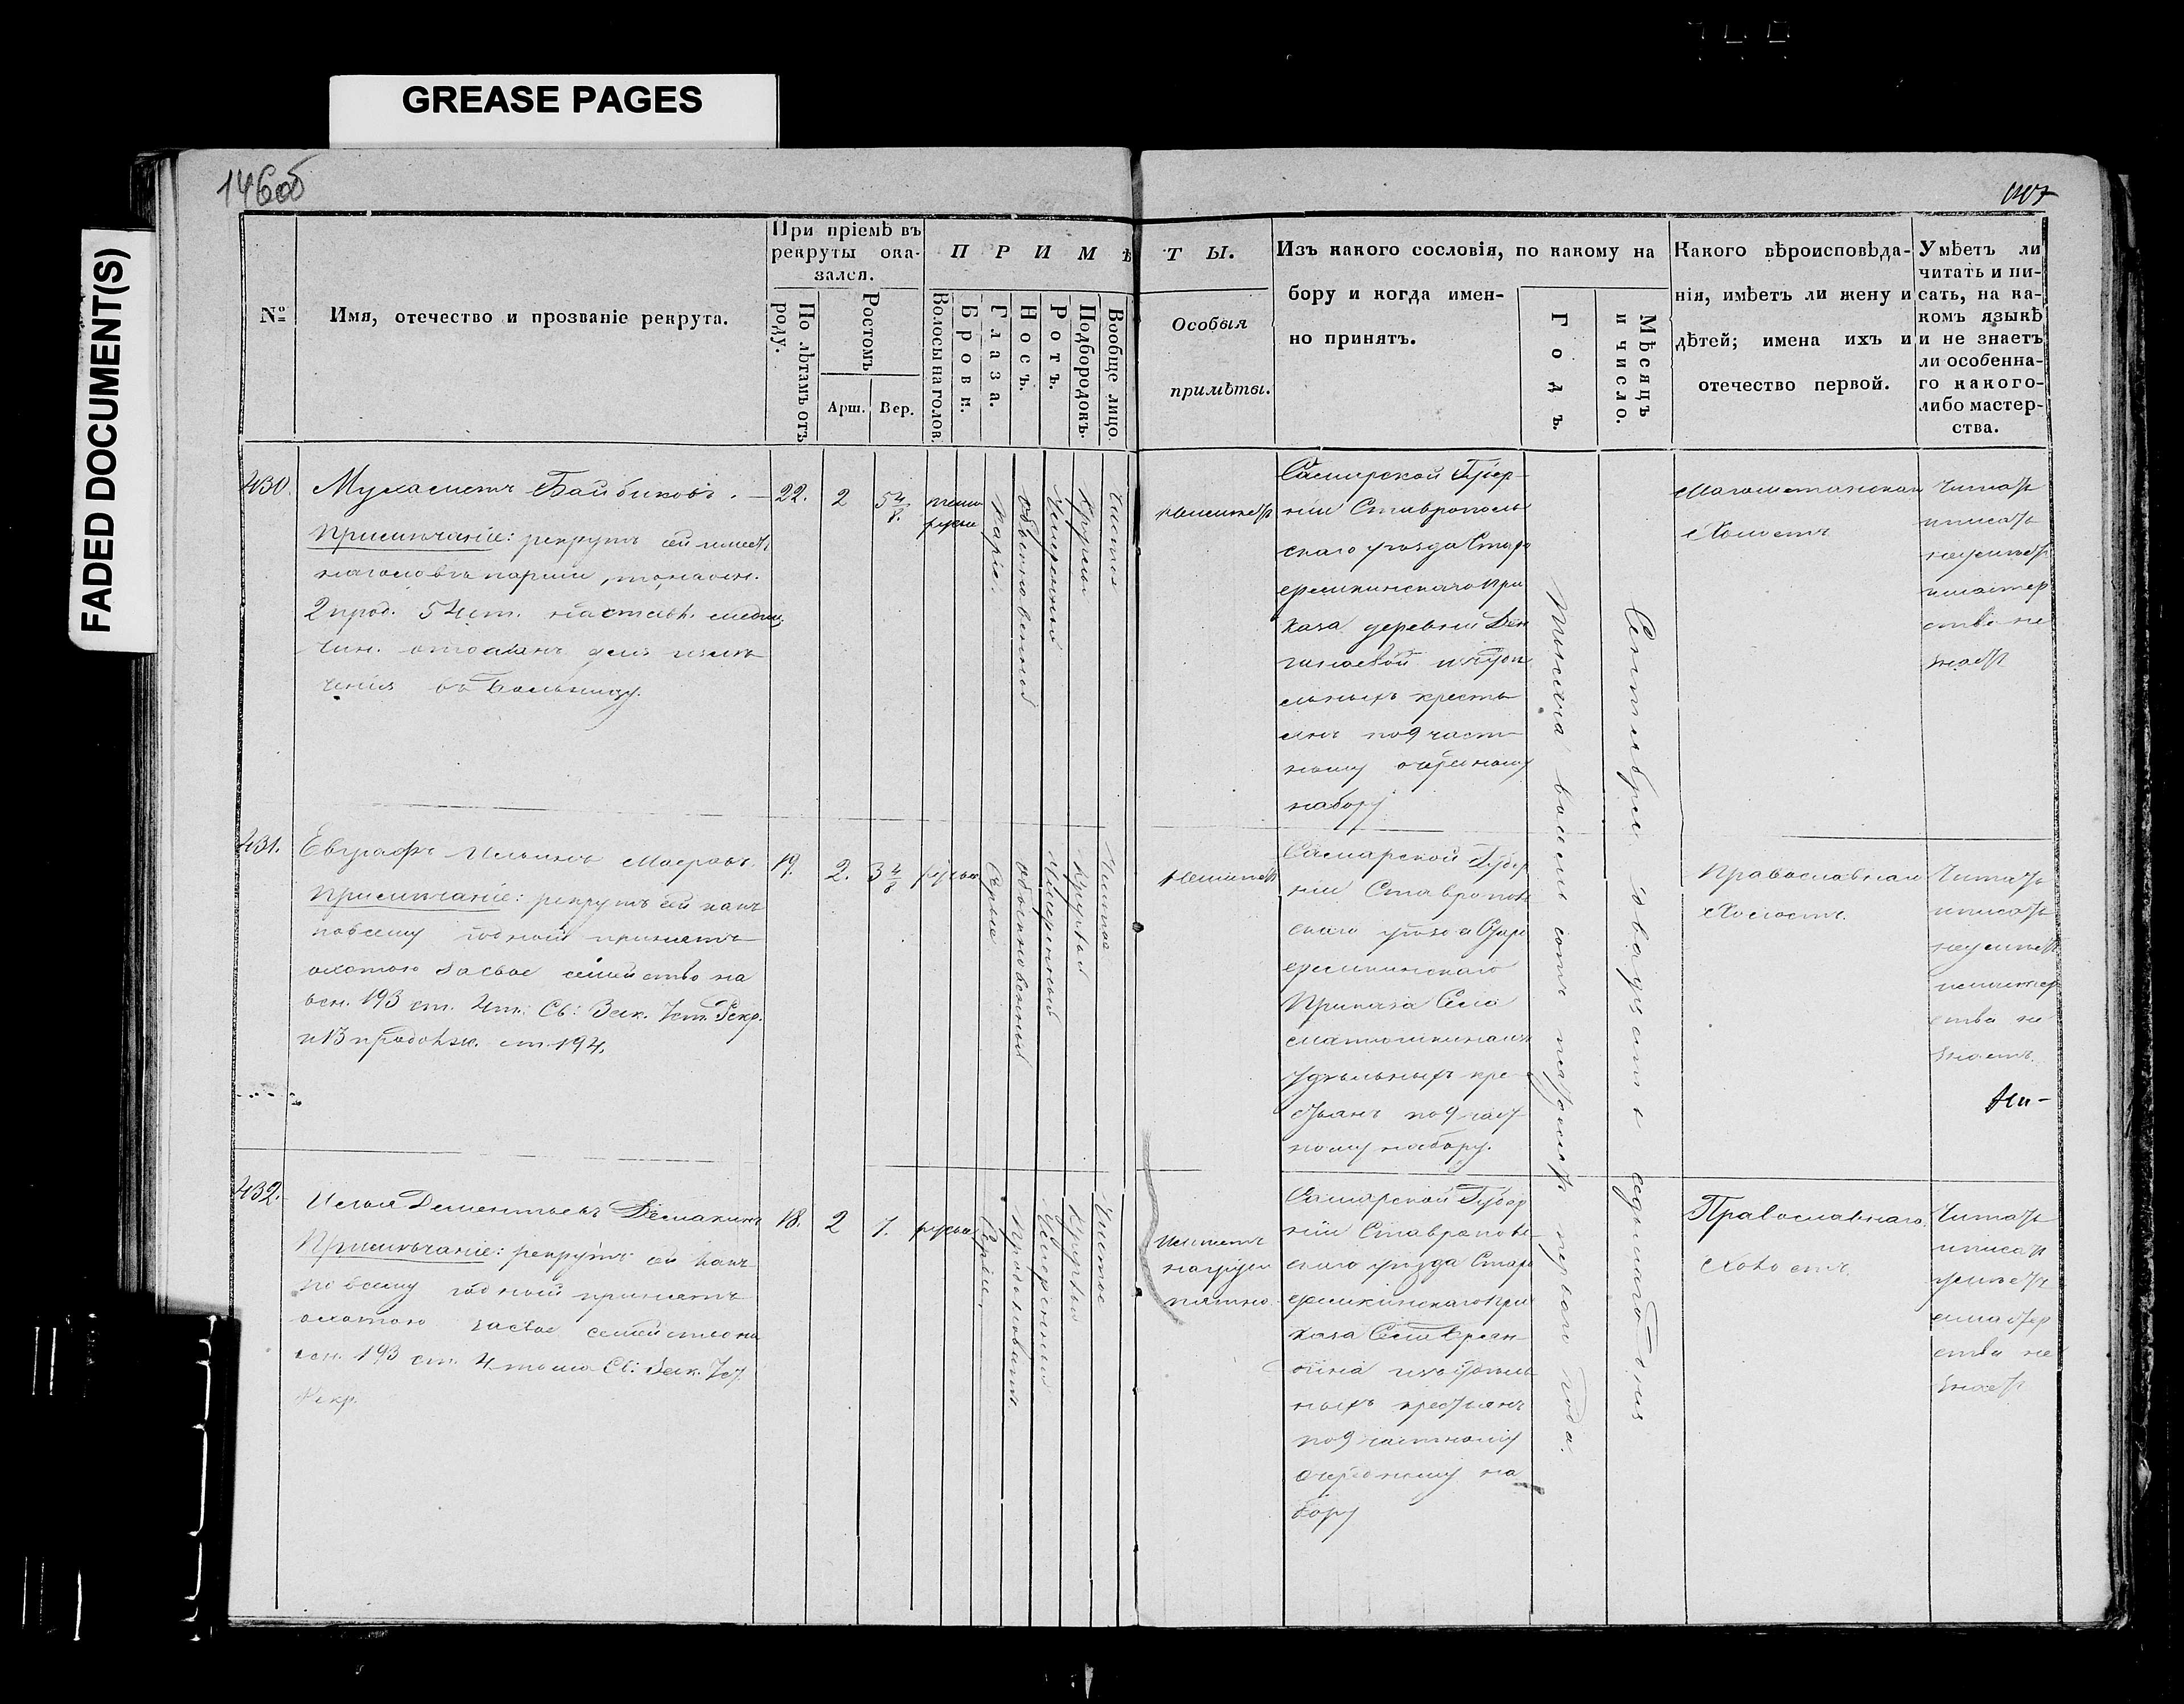 GREASE PAGES
FADED DOCUMENT(S)
146об
147
№
Имя, отечество и прозваніе рекрута.
При пріемѣ въ
рекруты ока-
зался.
По лѣтамъ отъ
роду.
Ростомъ
Арш.
Вер.
ПРИМѢ
Волосы на голов.
Брови.
Глаза.
Носъ.
Ротъ.
Подбородокъ.
Вообще лицо.
ТЫ.
Особыя
примѣты.
Изъ какого сословія, по какому на
бору и когда имен-
но принятъ.
Годъ.
Мѣсяцъ
и число.
Какого вѣроисповѣда-
нія, имѣетъ ли жену и
дѣтей; имена ихъ и
отечество первой.
Умѣетъ ли
читать и пи-
сать, на ка-
комъ языкѣ
и не знаетъ
ли особенна-
го какого-
либо мастер-
ства.
430.
Мухаметъ Байбиковъ.
Примѣчаніе: рекрутъ сей имеетъ
на головѣ парши, то на осн.
2 прод. 54 ст. настав. медиц
чин. отосланъ для излѣ
ченія въ больницу.
22.
2
5 4/8.
темно
русые
Каріе.
Обыкновенной
Умеренной
Круглой
Чистое
Неимеетъ
Самарской Губер-
ніи Ставрополь
скаго уезда Старо
еремкинскаго При
каза деревни
удѣ
ельныхъ кресть
янъ под част
ному очередному
набору
Тысяча восемь сотъ пятдесятъ перваго года.
Сентября двадцать седьмаго дня
Магометанской
Холостъ
Читать
и писать
неумеетъ
и мастер
ства не
знаетъ
431.
Евграфъ Ильинъ
Примѣчаніе: рекрутъ сей какъ
по всему годной принятъ
охотою за свое семейство на
осн. 193 ст. 4 т. Св. Зак. Уст. Рекр.
и 13 продолж. ст. 194.
19.
2.
3 4/8
русые
Серые
Обыкновенной
Умеренной
Круглой
Чистое
Неимеетъ
Самарской Губер
ніи Ставрополь
скаго уезда Старо
еремкинскаго
Приказа Села
Матюшкина изъ
удѣльныхъ кре-
стьянъ под част
ному набору.
Православнаго
Холостъ.
Читать
и писать
неумеетъ
и мастер
ства не
знаетъ.
432.
Илья Дементьевъ
Примѣчаніе: рекрутъ сей какъ
по всему годной принятъ
охотою за свое семейство на
осн. 193 ст. 4 тома Св. Зак. Уст.
Рекр.
18.
2
7.
русые
Серые
Продолговатый
Умеренной
Круглой
Чистое
Имеетъ
на груди
пятно.
Самарской Губер
ніи Ставрополь-
скаго уезда Старо
еремкинскаго При
каза Села
изъ удѣль
ныхъ крестьянъ
под частному
очередному на
бору
Православнаго
Холостъ
Читать
и писать
умеетъ
а мастер
ства не
знаетъ